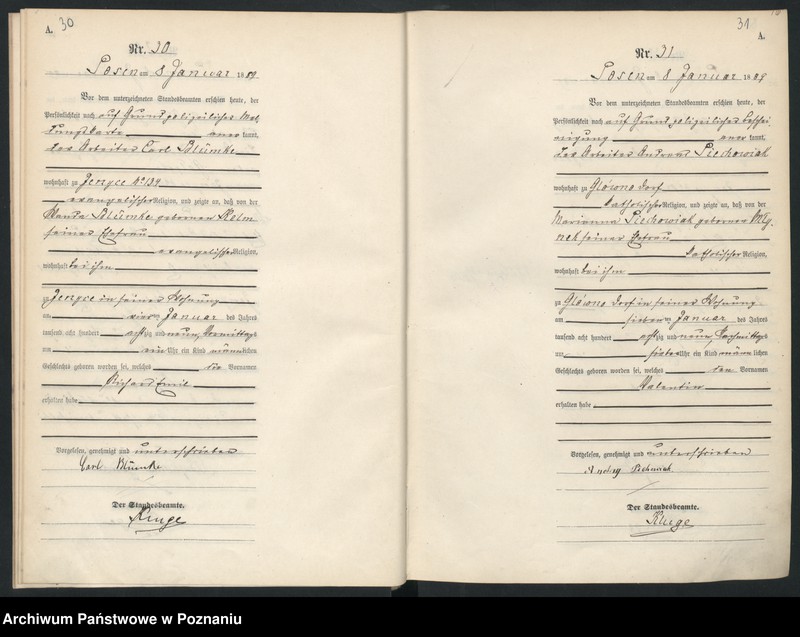 A. 30
Nr. 30
Posen am 8 Januar 1889
Vor dem unterzeichneten Standesbeamten erschien heute, der
Persönlichkeit nach auf Grund polizeilicher Mel-
dungskarte anerkannt,
der Arbeiter Carl Blümke
wohnhaft zu Jerzyce No 134
evangelischer Religion, und zeigte an, daß von der
Blümke geborenen
seiner Ehefrau
evangelischer Religion,
wohnhaft bei ihm
zu Jerzyce in seiner Wohnung
am vier ten Januar des Jahres
tausend acht hundert achtzig und neun, Vormittags
um ein Uhr ein Kind männlichen
Geschlechts geboren worden sei, welches die Vornamen
Richard Emil
erhalten habe
Vorgelesen, genehmigt und unterschrieben
Carl Blümke
Der Standesbeamte.
Kluge
31
A.
Nr. 31
Posen am 8 Januar 1889
Vor dem unterzeichneten Standesbeamten erschien heute, der
Persönlichkeit nach auf Grund polizeilicher Beschei
nigung anerkannt,
der Arbeiter Andreas Piechowiak
wohnhaft zu Glówno Dorf
katholischer Religion, und zeigte an, daß von der
Marianna Piechowiak geborenen
seiner Ehefrau
katholischer Religion,
wohnhaft bei ihm
zu Glówno Dorf in seiner Wohnung
am sieben ten Januar des Jahres
tausend acht hundert achtzig und neun, Nachmittags
um sieben Uhr ein Kind männlichen
Geschlechts geboren worden sei, welches den Vornamen
Valentin
erhalten habe
Vorgelesen, genehmigt und unterschrieben
Der Standesbeamte.
Kluge
Archiwum Państwowe w Poznaniu